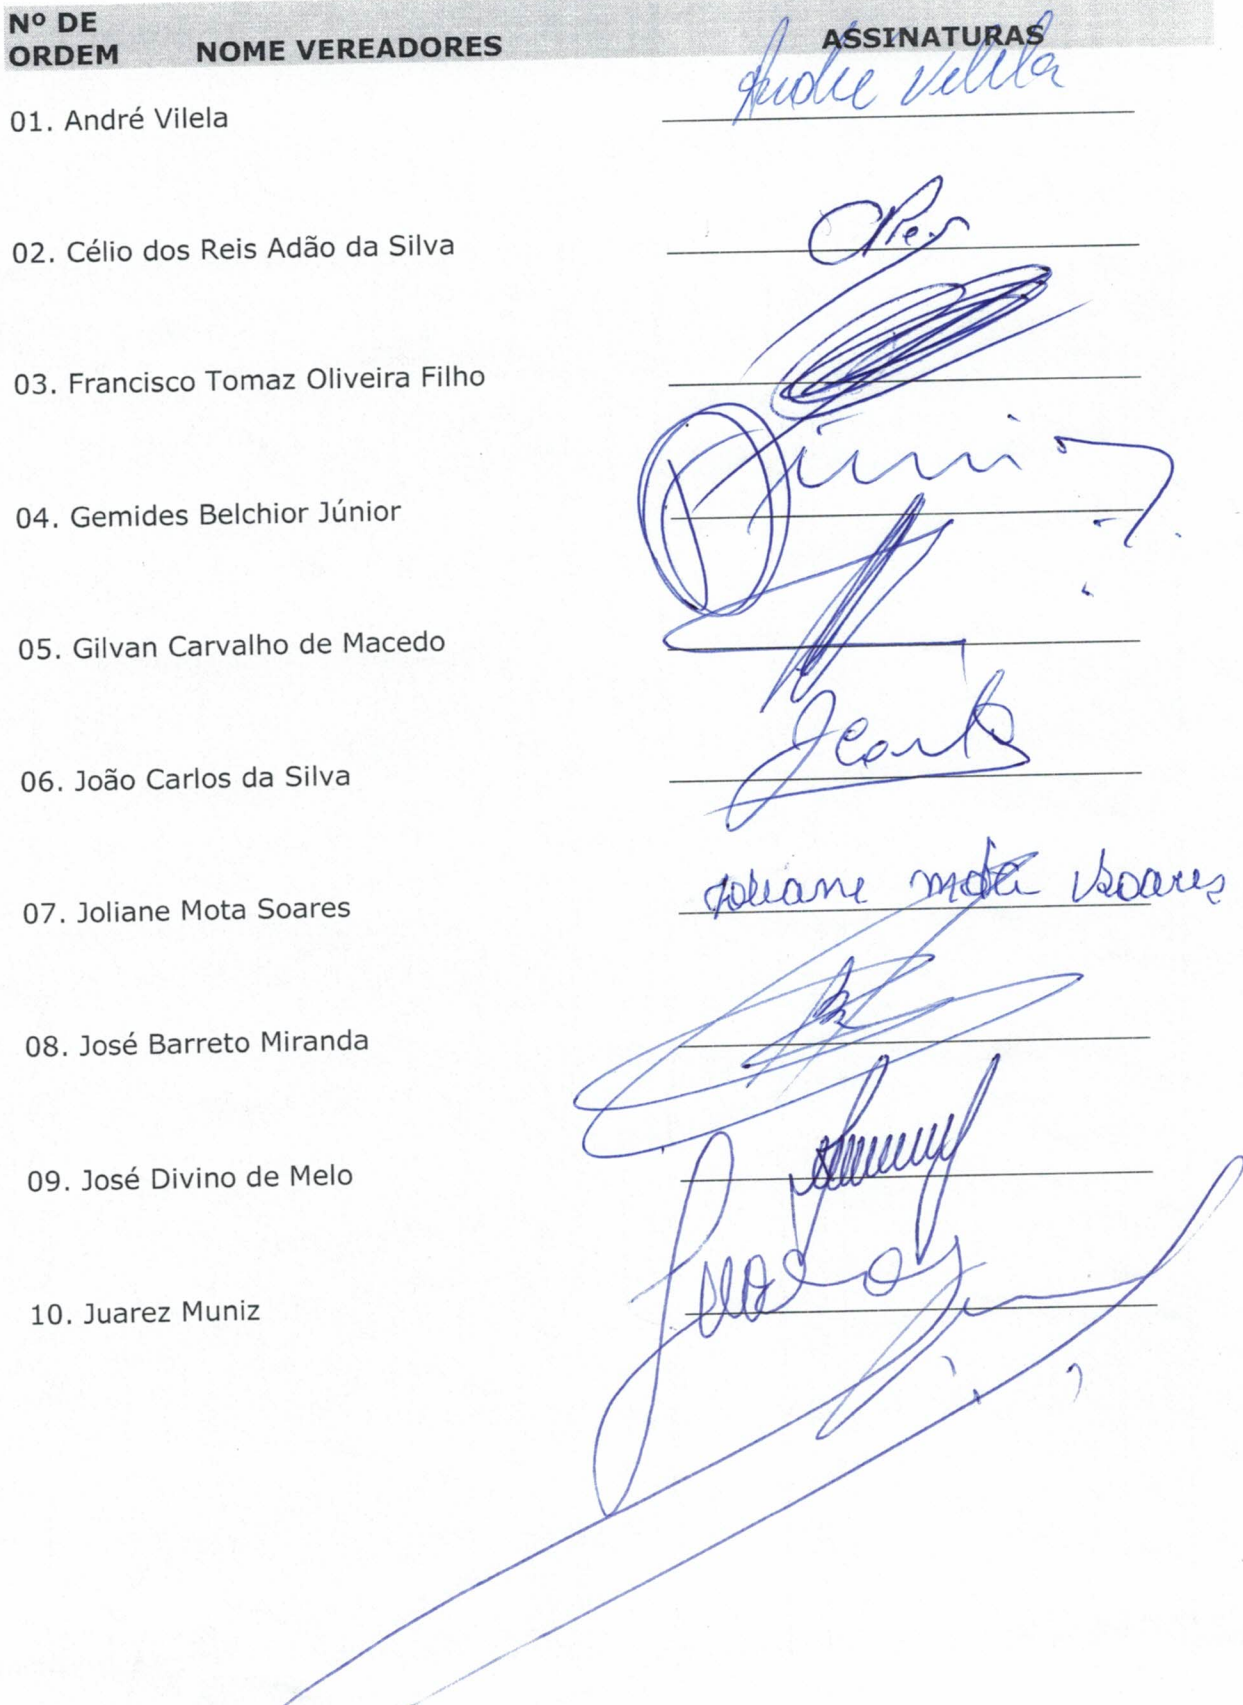 Nº DE
ORDEM NOME VEREADORES ASSINATURAS
01. André Vilela André Vilela
02. Célio dos Reis Adão da Silva
03. Francisco Tomaz Oliveira Filho
04. Gemides Belchior Júnior Júnior
05. Gilvan Carvalho de Macedo
06. João Carlos da Silva
07. Joliane Mota Soares Joliane Mota Soares
08. José Barreto Miranda
09. José Divino de Melo
10. Juarez Muniz